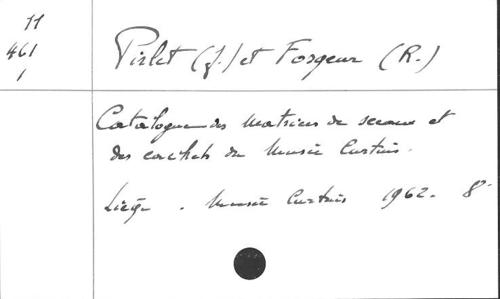 11
461
1
Pirlet (J.) et Forgeur (R.)
Catalogue des matrices de sceaux et
des cachets du Musée Curtius.
Liège. Musée Curtius 1962. 8°